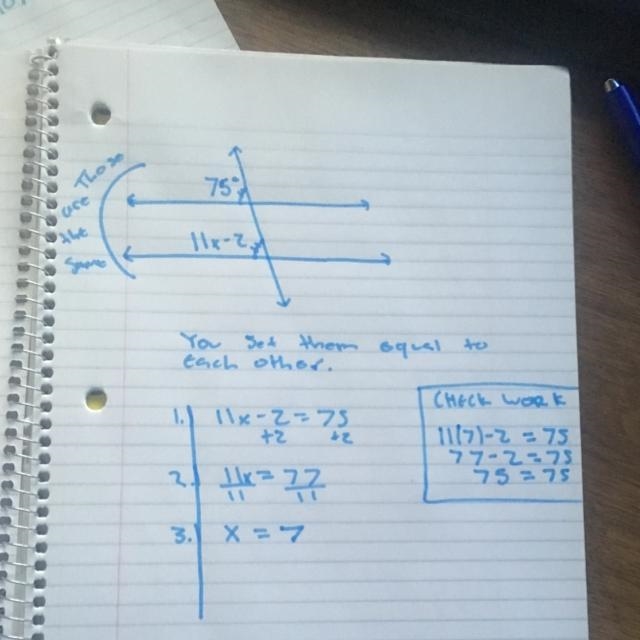 Those
are
the
same
75°
11x-2
You set them equal to
each other.
1. 11x-2 = 75
+2 +2
2. 11x = 77
11 11
3. x = 7
CHECK WORK
11(7)-2 = 75
77-2 = 75
75 = 75